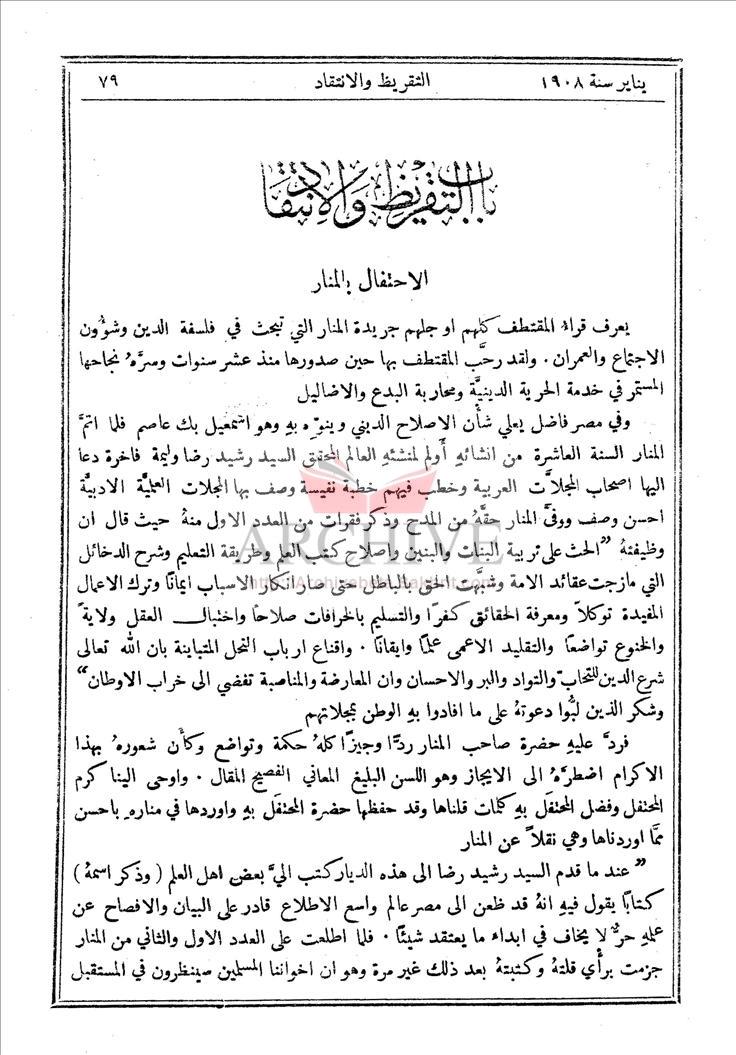 يناير سنة ١٩٠٨ التقريظ والانتقاد ٧٩
باب التقريظ والانتقاد
الاحتفال بالمنار
يعرف قراءُ المقتطف كلهم او جلهم جريدة المنار التي تبحث في فلسفة الدين وشؤُون
الاجتماع والعمران . ولقد رحَّب المقتطف بها حين صدورها منذ عشر سنوات وسرَّهُ نجاحها
المستمر في خدمة الحرية الدينيَّة ومحاربة البدع والاضاليل
وفي مصر فاضل يعلي شأن الاصلاح الديني وينوّه بهِ وهو اسمعيل بك عاصم فلما اتمَّ
المنار السنة العاشرة من انشائهِ أَولم لمنشئهِ العالم المحقق السيد رشيد رضا وليمة فاخرة دعا
اليها اصحاب المجلاَّت العربية وخطب فيهم خطبة نفيسة وصف بها المجلات العلميَّة الادبيَّة
احسن وصف ووفَّى المنار حقَّهُ من المدح وذكر فقرات من العدد الاول منهُ حيث قال ان
وظيفتهُ ”الحث على تربية البنات والبنين واصلاح كتب العلم وطريقة التعليم وشرح الدخائل
التي مازجت عقائد الامة وشبَّهت الحق بالباطل حتى صار انكار الاسباب ايمانًا وترك الاعمال
المفيدة توكلاً ومعرفة الحقائق كفرًا والتسليم بالخرافات صلاحًا واختبال العقل ولايةً
والخنوع تواضعًا والتقليد الاعمى علمًا وايقانًا . واقناع ارباب النحل المتباينة بان الله تعالى
شرع الدين للتحاب والتواد والبر والاحسان وان المعارضة والمناصبة تفضي الى خراب الاوطان“
وشكر الذين لبُّوا دعوتهُ على ما افادوا بهِ الوطن بمجلاتهم
فردَّ عليهِ حضرة صاحب المنار ردًّا وجيزًا كلهُ حكمة وتواضع وكأن شعورهُ بهذا
الاكرام اضطرَّهُ الى الايجاز وهو اللسن البليغ المعاني الفصيح المقال . واوحى الينا كرم
المحتفل وفضل المحتفَل بهِ كلمات قلناها وقد حفظها حضرة المحتفَل بهِ واوردها في منارهِ باحسن
ممَّا اوردناها وهي نقلاً عن المنار
”عند ما قدم السيد رشيد رضا الى هذه الديار كتب اليَّ بعض اهل العلم ( وذكر اسمهُ )
كتابًا يقول فيهِ انهُ قد ظعن الى مصر عالم واسع الاطلاع قادر على البيان والافصاح عن
علمهِ حرٌّ لا يخاف في ابداء ما يعتقد شيئًا . فلما اطلعت على العدد الاول والثاني من المنار
جزمت برأي قلتهُ وكتبتهُ بعد ذلك غير مرة وهو ان اخواننا المسلمين سينظرون في المستقبل
ARCHIVE